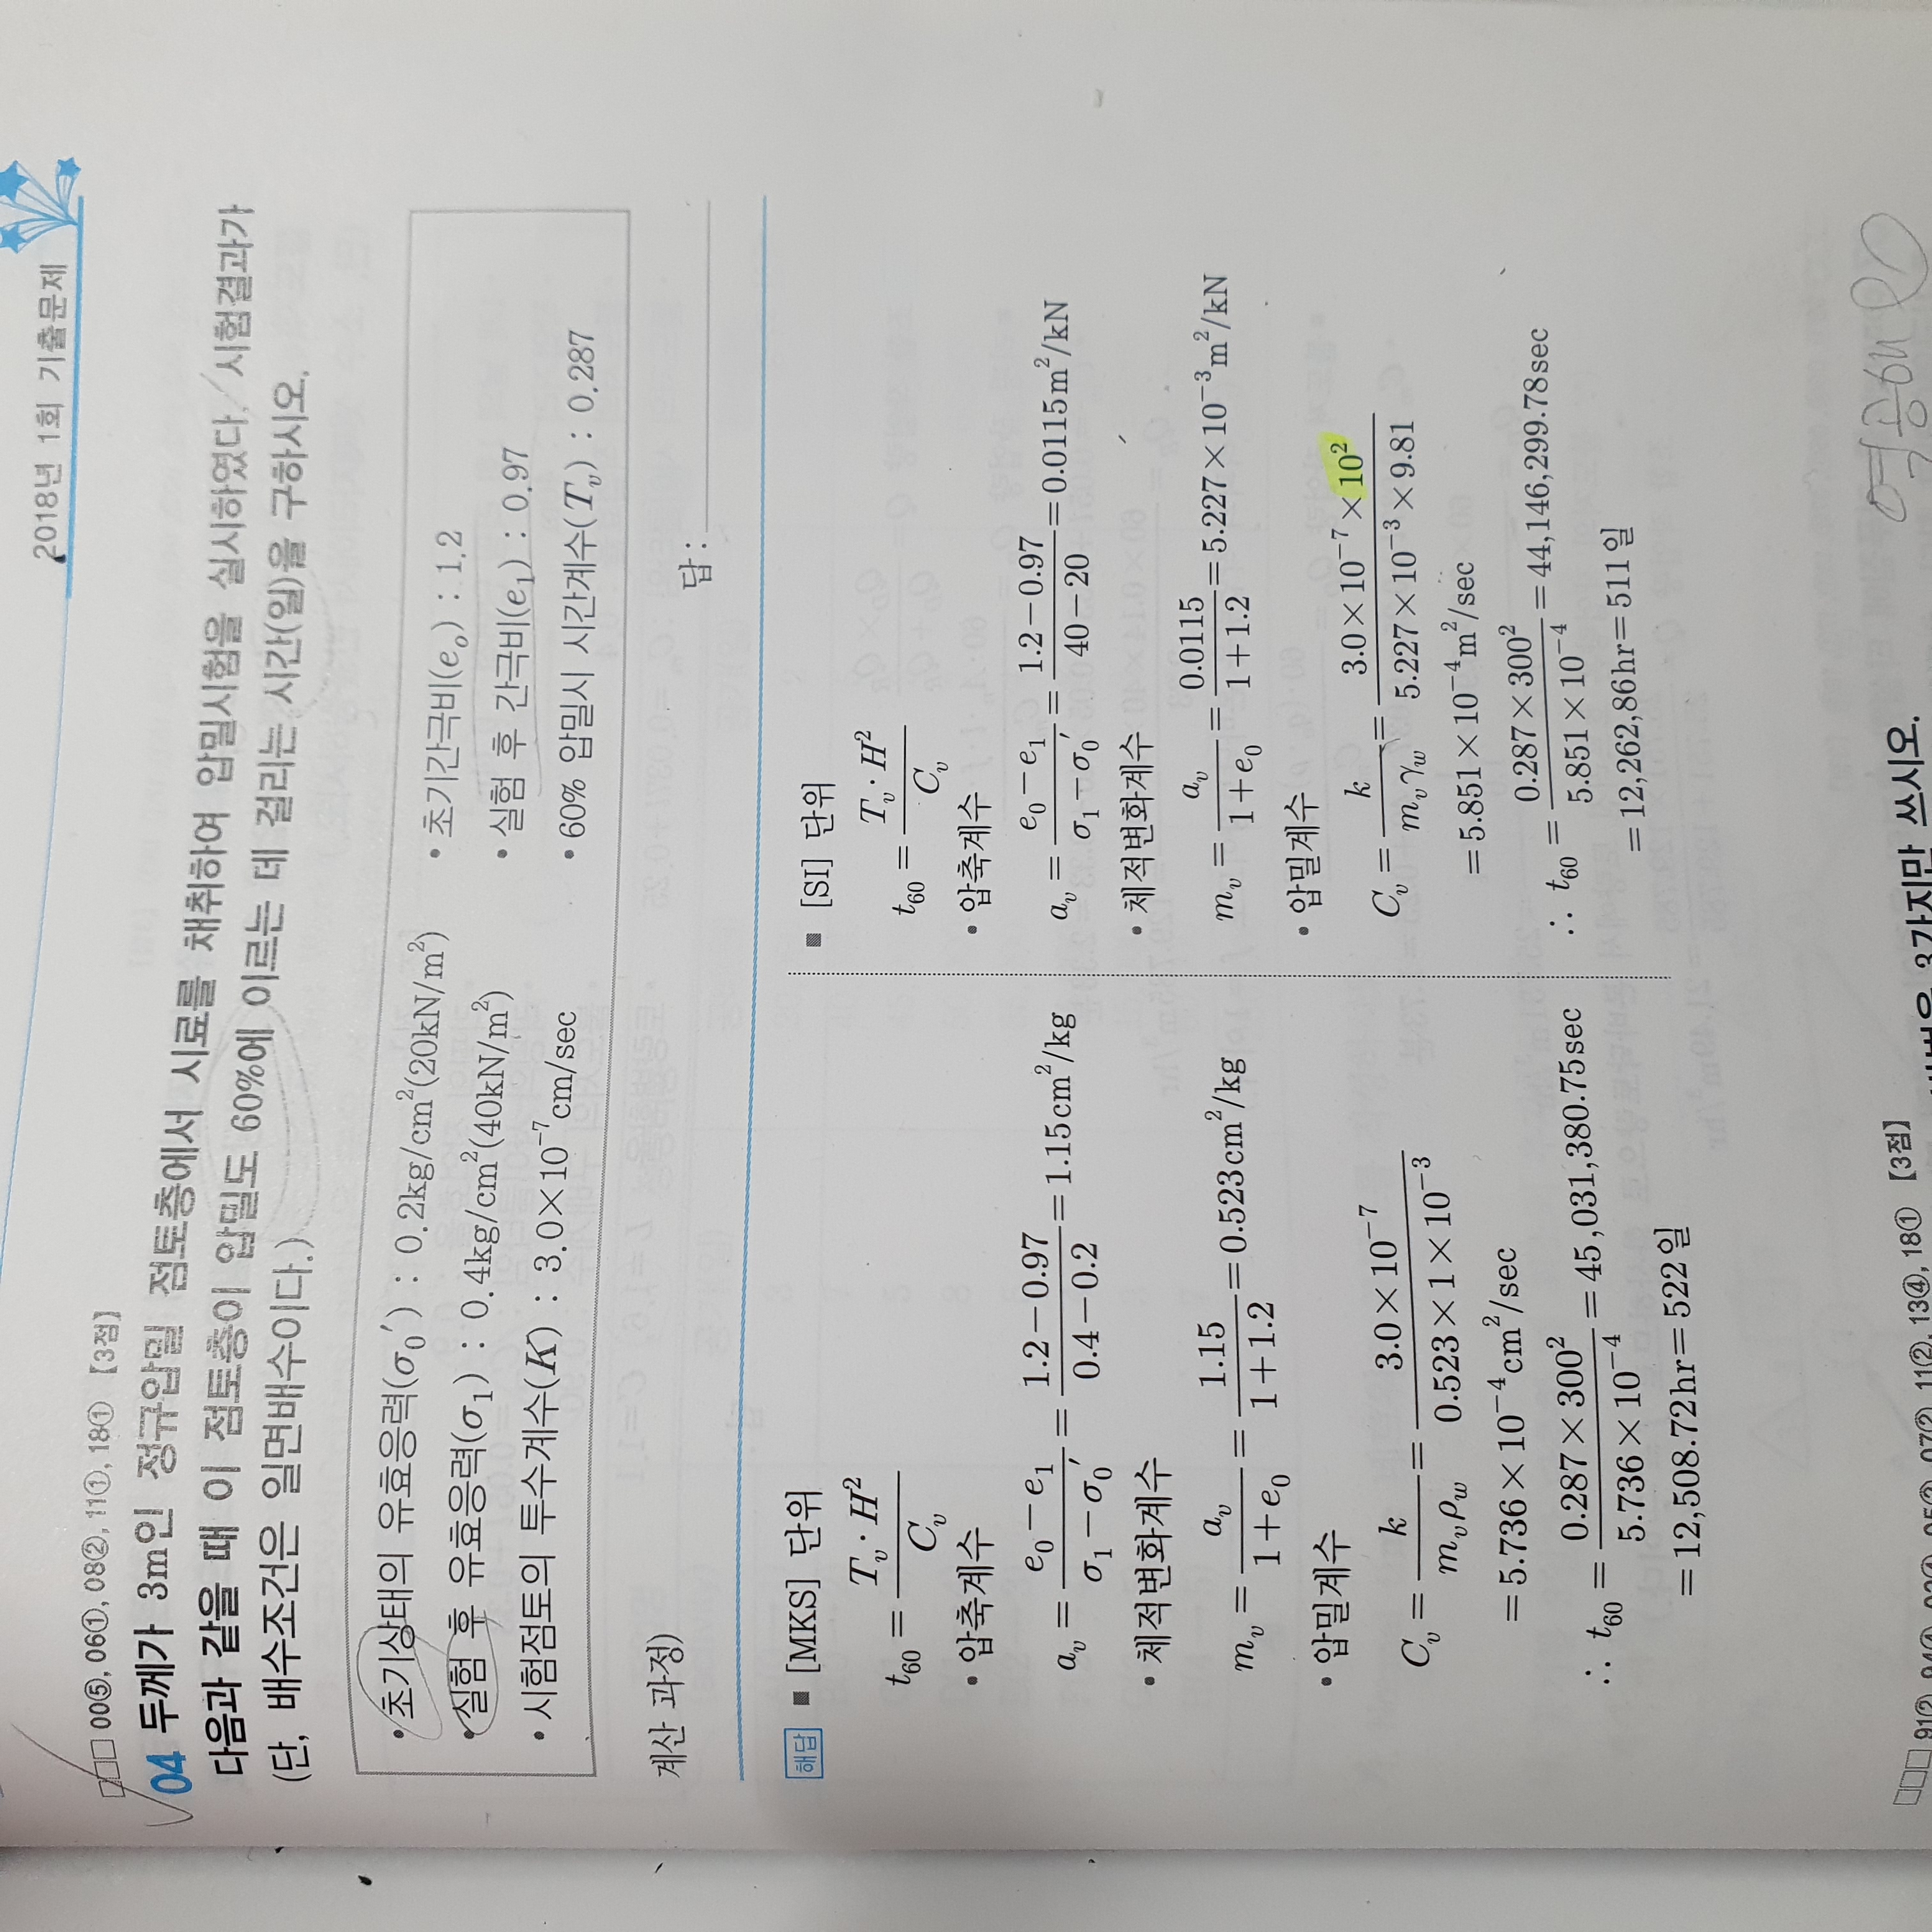 2018년 1회 기출문제
□□□ 00⑤, 06①, 08②, 11①, 18① 【3점】
04 두께가 3m인 정규압밀 점토층에서 시료를 채취하여 압밀시험을 실시하였다. 시험결과가
다음과 같을 때 이 점토층이 압밀도 60%에 이르는 데 걸리는 시간(일)을 구하시오.
(단, 배수조건은 일면배수이다.)
• 초기상태의 유효응력(σ₀′) : 0.2kg/cm²(20kN/m²) • 초기간극비(e₀) : 1.2
• 실험 후 유효응력(σ₁) : 0.4kg/cm²(40kN/m²) • 실험 후 간극비(e₁) : 0.97
• 시험점토의 투수계수(K) : 3.0×10⁻⁷cm/sec • 60% 압밀시 시간계수(Tᵥ) : 0.287
계산 과정) 답 :
해답 ■ [MKS] 단위
t₆₀ = Tᵥ·H² / Cᵥ
• 압축계수
aᵥ = (e₀−e₁)/(σ₁−σ₀′) = (1.2−0.97)/(0.4−0.2) = 1.15cm²/kg
• 체적변화계수
mᵥ = aᵥ/(1+e₀) = 1.15/(1+1.2) = 0.523cm²/kg
• 압밀계수
Cᵥ = k/(mᵥρw) = 3.0×10⁻⁷/(0.523×1×10⁻³)
= 5.736×10⁻⁴cm²/sec
∴ t₆₀ = (0.287×300²)/(5.736×10⁻⁴) = 45,031,380.75sec
= 12,508.72hr = 522일
■ [SI] 단위
t₆₀ = Tᵥ·H² / Cᵥ
• 압축계수
aᵥ = (e₀−e₁)/(σ₁−σ₀′) = (1.2−0.97)/(40−20) = 0.0115m²/kN
• 체적변화계수
mᵥ = aᵥ/(1+e₀) = 0.0115/(1+1.2) = 5.227×10⁻³m²/kN
• 압밀계수
Cᵥ = k/(mᵥγw) = (3.0×10⁻⁷×10²)/(5.227×10⁻³×9.81)
= 5.851×10⁻⁴m²/sec
∴ t₆₀ = (0.287×300²)/(5.851×10⁻⁴) = 44,146,299.78sec
= 12,262,86hr = 511일
11②, 13④, 18① 【3점】
3가지만 쓰시오.